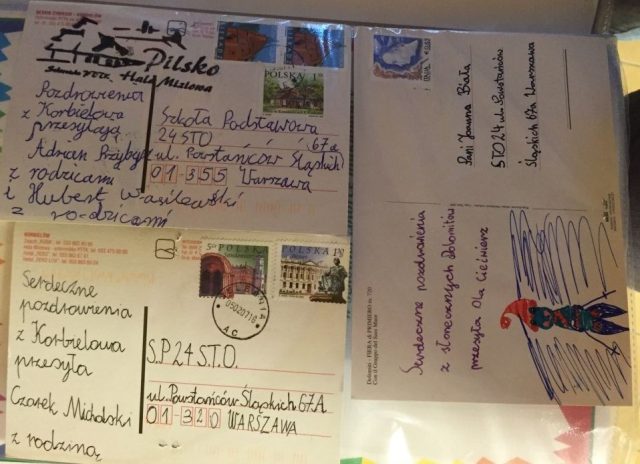 Pilsko
Hala Miziowa
Pozdrowienia
z Korbielowa
przesyłają
Adrian Przybysz
z rodzicami
i Hubert Wasilewski
z rodzicami
POLSKA
Szkoła Podstawowa
24 STO 67a
ul. Powstańców Śląskich
01-355 Warszawa
KORBIELÓW
Serdeczne
pozdrowienia
z Korbielowa
przesyła
Czarek Michalski
z rodziną
POLSKA
POLSKA
S.P 24 S.T.O.
ul. Powstańców Śląskich 67A
01-320 WARSZAWA
Pani Joanna Biała
STO 24 ul. Powstańców
Śląskich 67a Warszawa
Dolomiti - FIERA di PRIMIERO m. 710
Serdeczne pozdrowienia
z słonecznych Dolomitów
przesyła Ola Cieciwierz